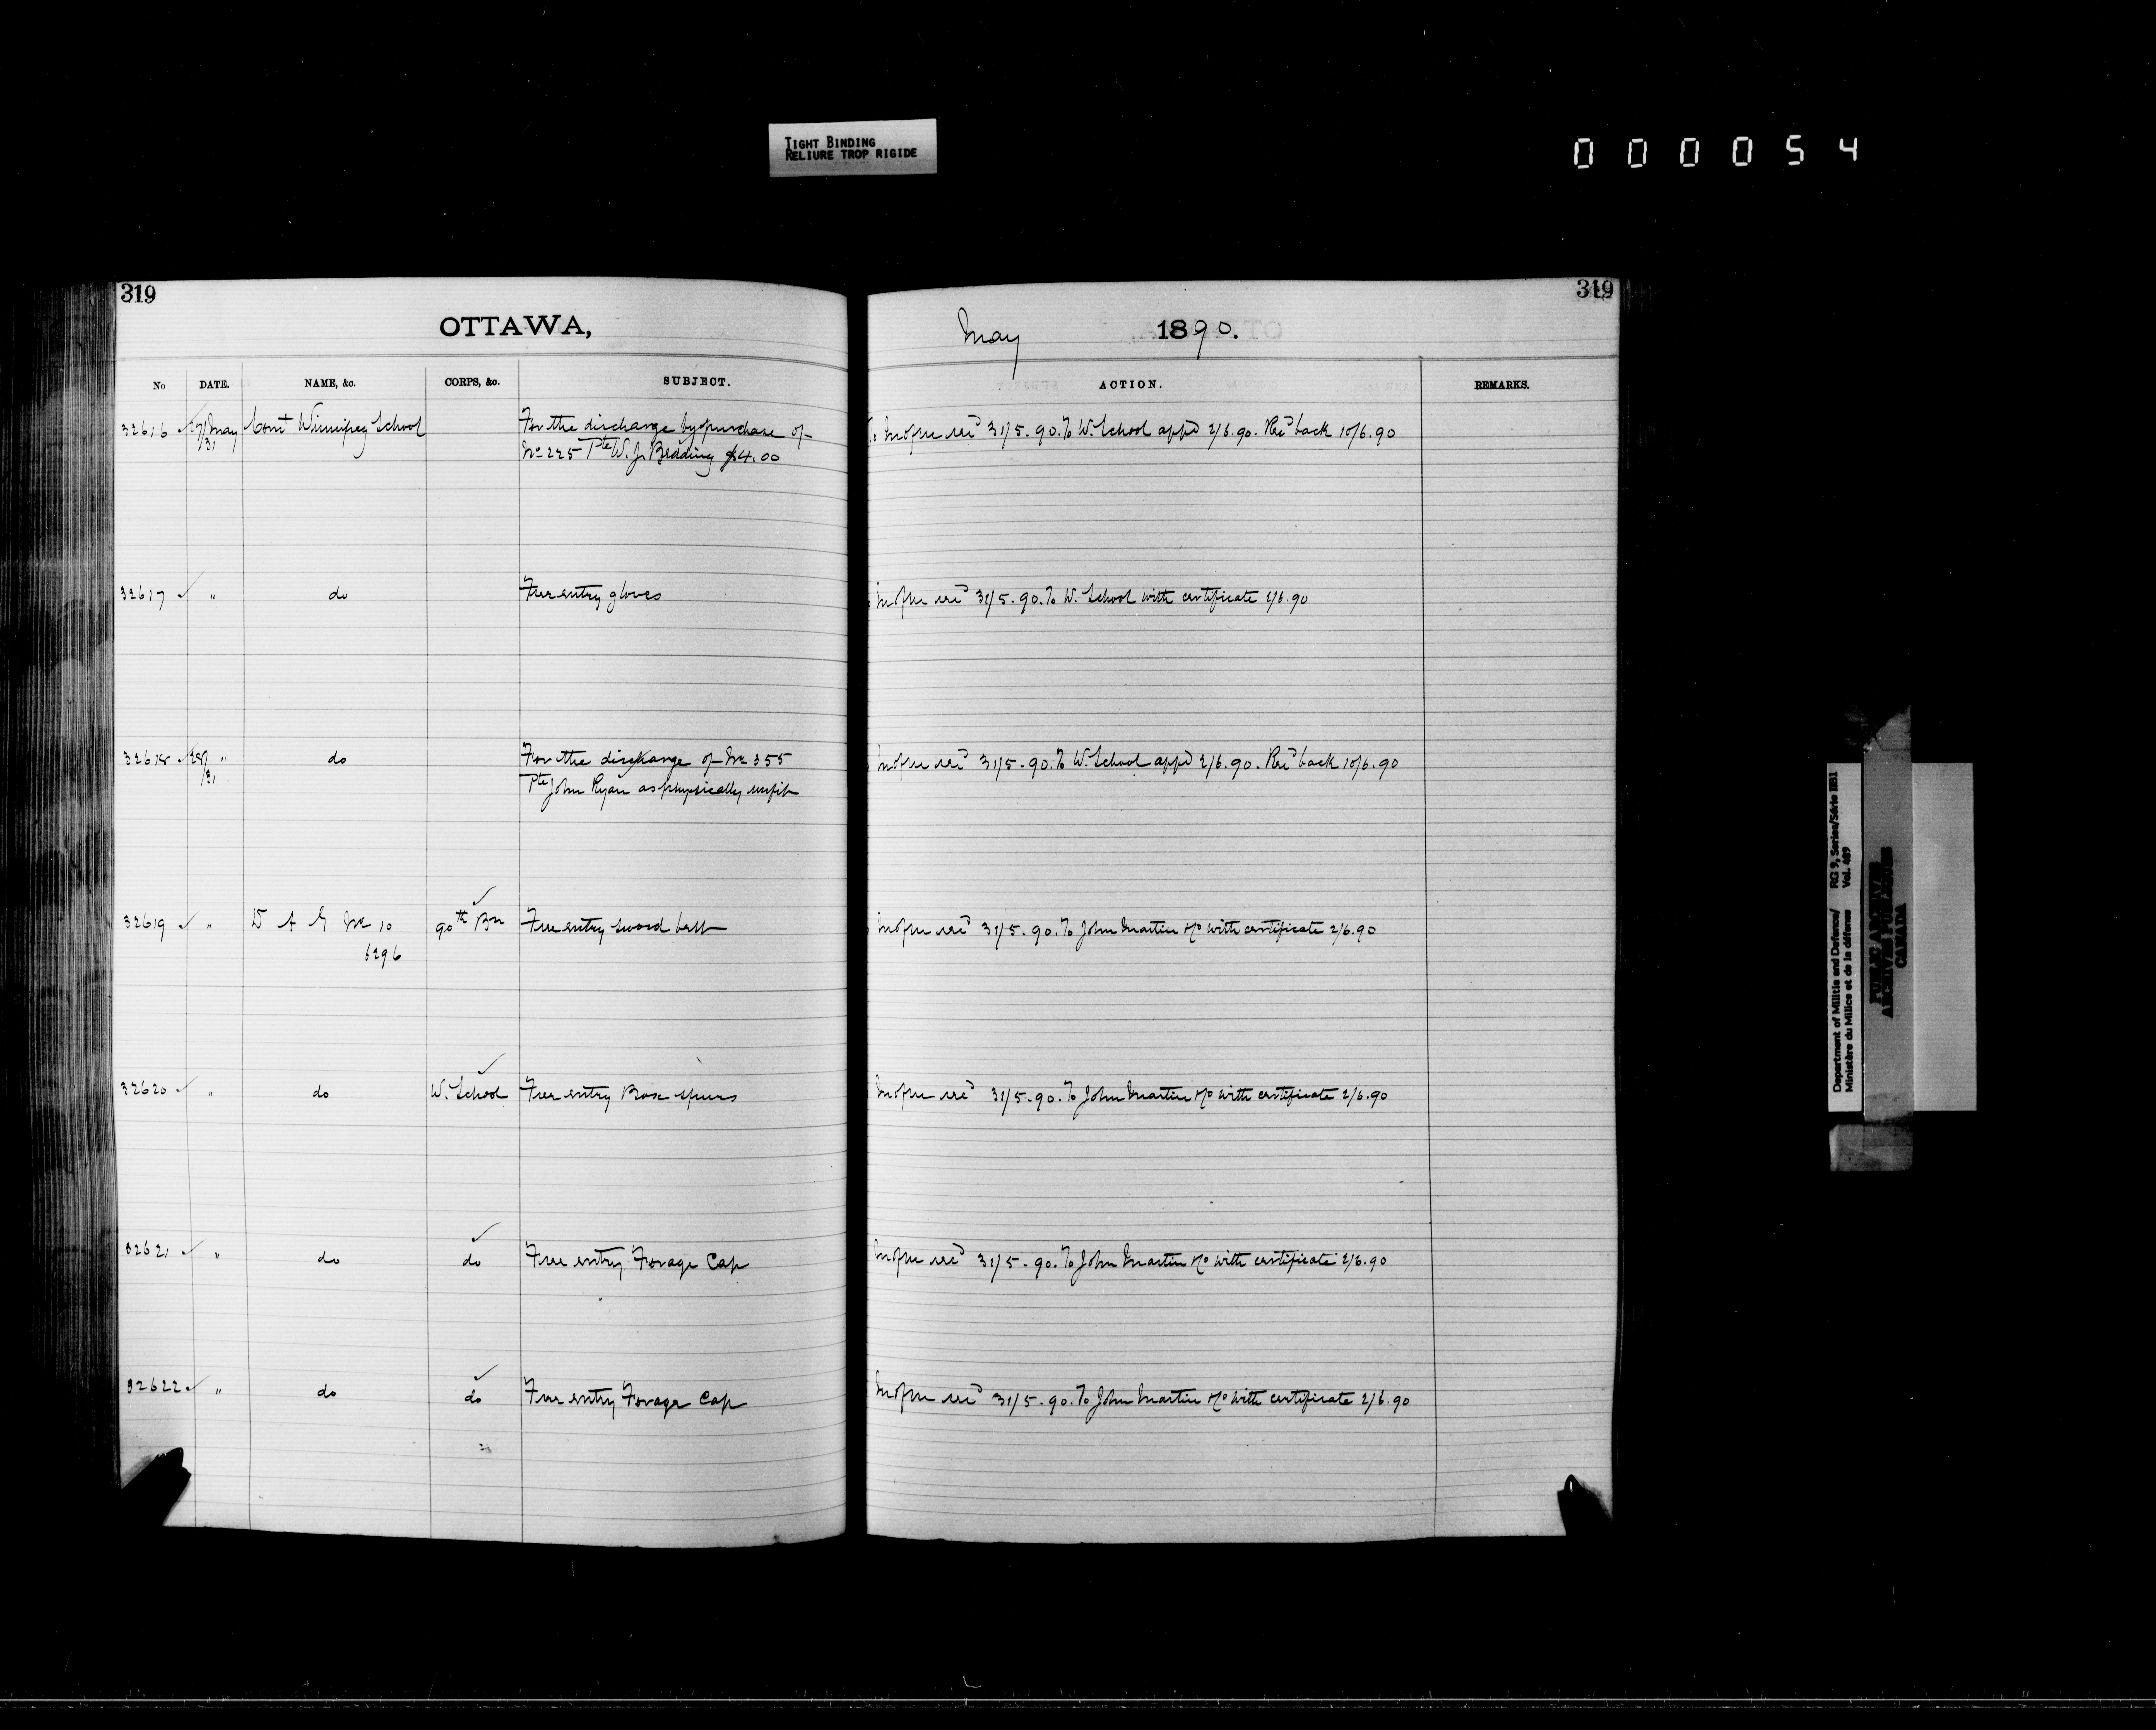 TIGHT BINDING
RELIURE TROP RIGIDE
000054
319
319
OTTAWA,
May 1890.
No DATE. NAME, &c. CORPS, &c. SUBJECT. ACTION. REMARKS.
32616 27/31 May Comt Winnipeg School For the discharge by purchase of
No 225 Pte W. J. Bedding $4.00
recd 31/5.90. To W. School appd 2/6.90. Recd back 10/6.90
32617 " do Free entry gloves
recd 31/5.90. To W. School with certificate 2/6.90
32618 28/31 " do For the discharge of No 355
Pte John Ryan as physically unfit
recd 31/5.90. To W. School appd 2/6.90. Recd back 10/6.90
32619 " D A G No 10 90th Bn Free entry sword belt
6296
recd 31/5.90. To John Martin with certificate 2/6.90
32620 " do W. School Free entry Box spurs
recd 31/5.90. To John Martin with certificate 2/6.90
32621 " do do Free entry Forage Cap
recd 31/5.90. To John Martin with certificate 2/6.90
32622 " do do Free entry Forage Cap
recd 31/5.90. To John Martin with certificate 2/6.90
Department of Militia and Defence/ RG 9, Series/Série IIB1
Ministère du Milice et de la défense Vol. 489
PUBLIC ARCHIVES
ARCHIVES PUBLIQUES
CANADA